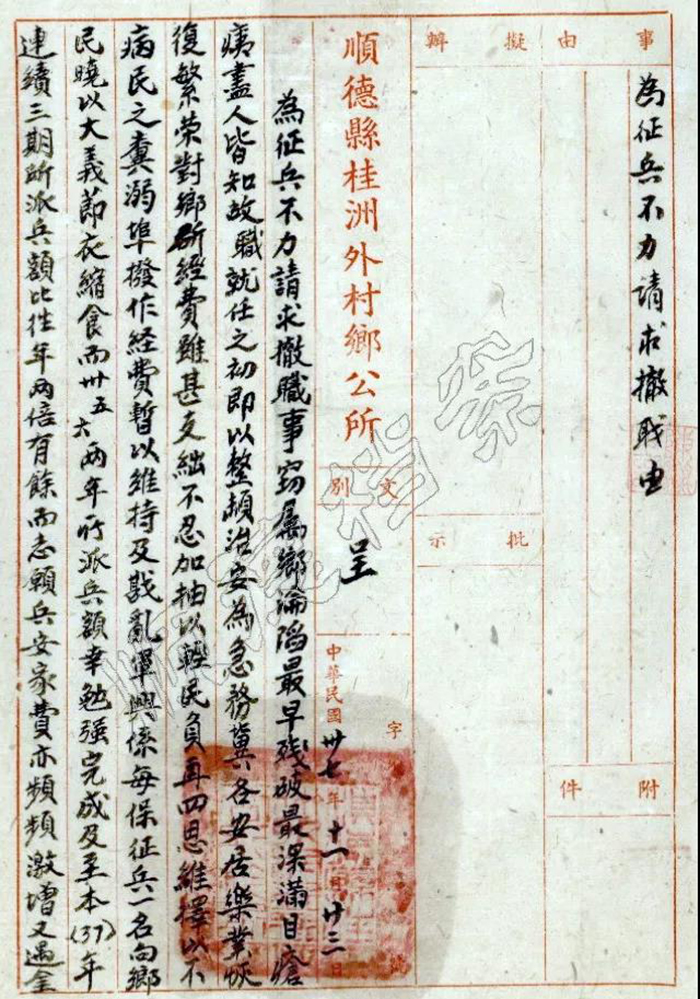 事由
為征兵不力請求撤戝由
附件
擬辦
批示
順德縣桂洲外村鄉公所
文別
呈
字
中華民國卅七年十一月廿三日
號
為征兵不力請求撤職事窃屬鄉淪陷最早残破最深滿目瘡
痍盡人皆知故職就任之初即以整頓治安為急務冀各安居樂業恢
復繁荣對鄉所經費雖甚支絀不忍加抽以輕民負再四思維擇以不
病民之糞溺埠撥作経費暫以維持及戡亂軍興係每保征兵一名向鄉
民曉以大義節衣縮食而卅五六両年所派兵額幸勉强完成及至本(37)年
連續三期所派兵額比往年两倍有餘而志願兵安家費亦頻頻激增又遇金
順德档案